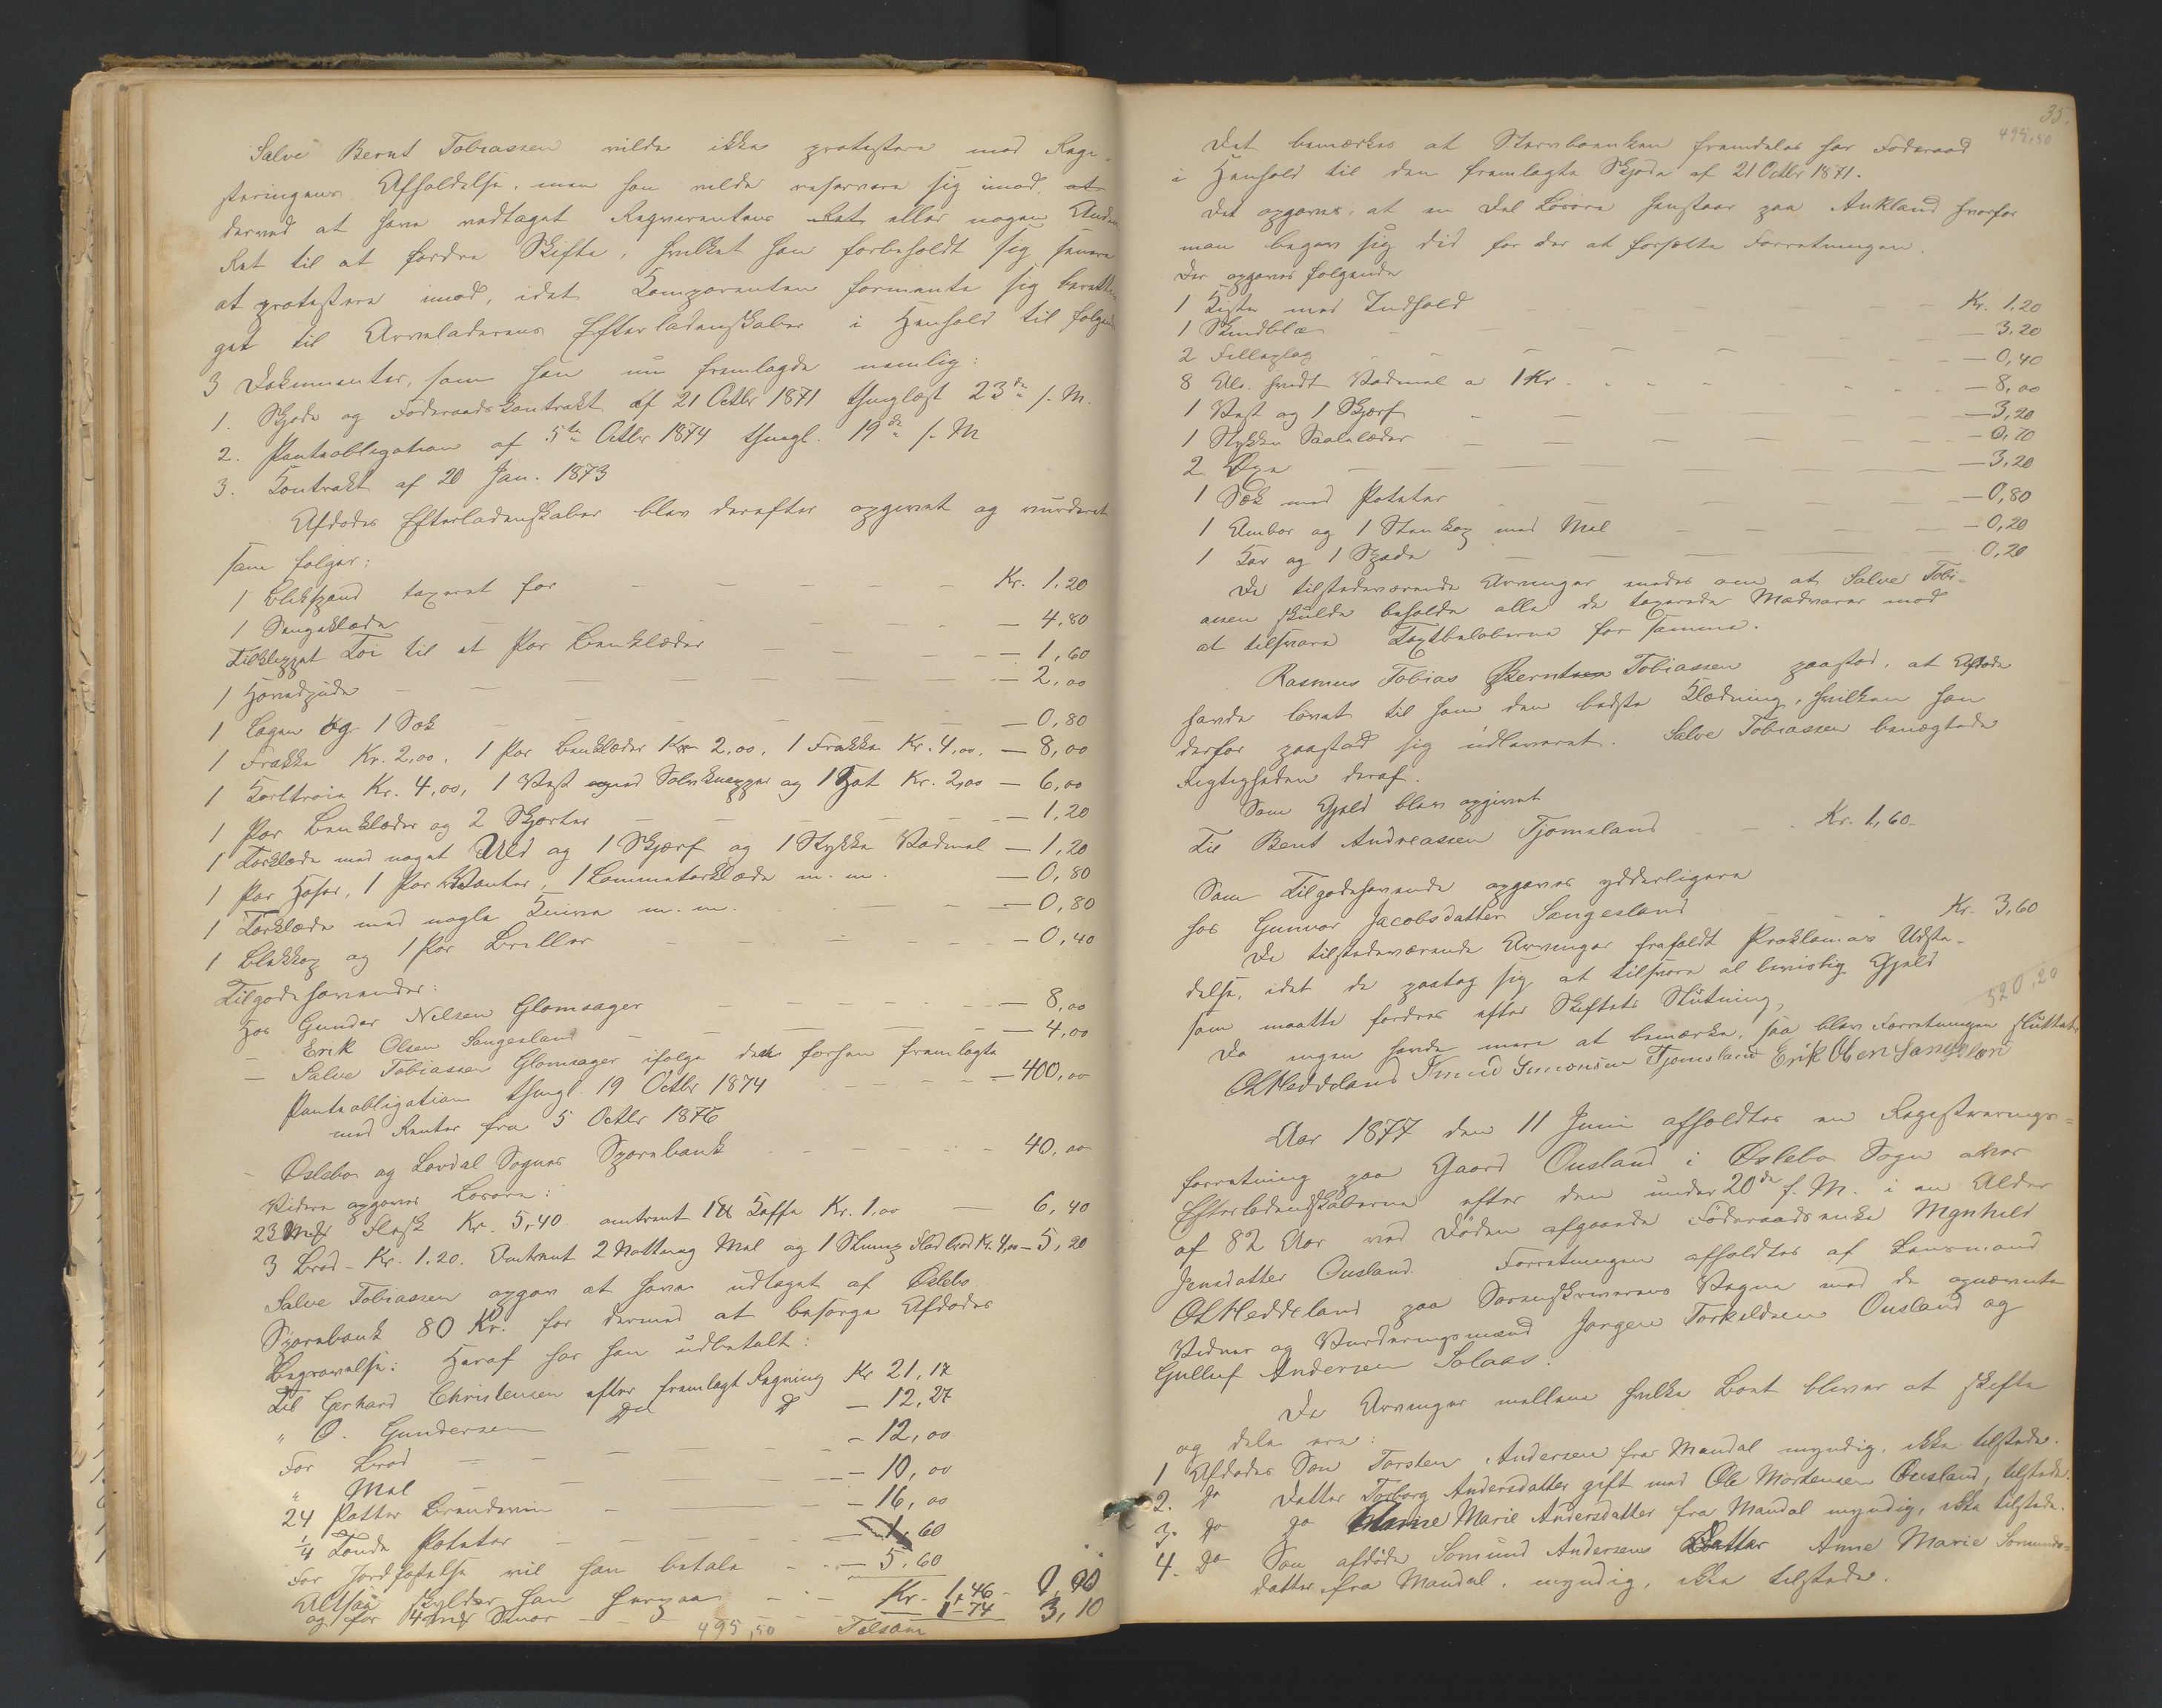 Salve Bernt Tobiassen vilde ikke protestere mod Regi-
streringens Afholdelse, men han vilde reservere sig imod, at
derved at have vedtaget Reqvirentens Ret eller nogen Anden
Ret til at fordre Skifte, hvilket han forbeholdt sig senere
at protestere imod, idet Comparenten formente sig beretti-
get til Arveladerens Efterladenskaber i Henhold til følgende
3 Dokumenter, som han nu fremlagde nemlig:
1. Skjøde og Føderaadskontrakt af 21 Octbr 1871 thinglæst 23de s. M.
2. Panteobligation af 5te Octbr 1874 thingl. 19de s. M
3. Contrakt af 20 Jan. 1873
Afdødes Efterladenskaber blev derefter opgivet og vurderet
som følger:
1 Blikspand taxeret for Kr. 1.20
1 Sengeklæde — 4,80
Tilklippet Tøi til et Par Benklæder — 1,60
1 Hovedpude — 2,00
1 Lagen og 1 Sæk — 0,80
1 Frakke Kr. 2,00, 1 Par Benklæder Kr 2,00, 1 Frakke Kr. 4,00, — 8,00
1 Kortrøie Kr. 4,00, 1 Vest med Sølvknapper og 1 Hat Kr. 2,00 — 6,00
1 Par Benklæder og 2 Skjorter — 1,20
1 Tørklæde med noget Uld og 1 Skjærf og 1 Stykke Vadmel — 1,20
1 Par Hoser, 1 Par Vanter, 1 Lommetørklæde m. m. — 0,80
1 Tørklæde med nogle Knive m. m. — 0,80
1 Blekkop og 1 Par Briller — 0,40
Tilgodehavender:
Hos Gunder Nilsen Glomsager — 8,00
— Erik Olsen Sangesland — 4,00
— Salve Tobiassen Glomsager ifølge den forhen fremlagte
Panteobligation thingl. 19 Octbr 1874 — 400,00
med Renter fra 5 Octbr 1876
Øslebø og Løvdal Sognes Sparebank 40,00
Videre opgaves Løsøre:
23 Mrk Flesk Kr. 5,40 omtrent 1 ℔ Kaffe Kr. 1.00 — 6,40
3 Brød — Kr. 1.20. Omtrent 2 Nattung Mel og 1 Stump Fladbrød Kr. 4,00 — 5,20
Salve Tobiassen opgav at have udtaget af Øslebø
Sparebank 80 Kr. for dermed at besørge Afdødes
Begravelse: Heraf har han udbetalt:
Til Gerhard Christensen efter fremlagt Regning Kr 21,17
" O. Gundersen do do — 12,27
For Brød — 12,00
" Mel — 10,00
24 Potter Brændeviin — 16,00
1/4 Tønde Poteter — 1,60
For Jordfæstelse vil han betale — 5.60
Altsaa skylder han herpaa Kr. 1,46
og for 4 Mrk Smør 1-74 3,10
495,50 Tilsam

35.
495,50
Det bemærkes at Stervboenken fremdeles har Føderaad
i Henhold til den fremlagte Skjøde af 21 Octbr 1871.
Det opgaves, at en Del Løsøre henstaar paa Aukland hvorfor
man begav sig did for der at forsætte Forretningen.
Der opgaves følgende
1 Kiste med Indhold Kr. 1.20
1 Skindblæ — 3,20
2 Filleplag — 0,40
8 Al. hvidt Vadmel a 1 Kr. — 8,00
1 Vest og 1 Skjærf — 3,20
1 Stykke Saalelæder — 0,70
2 Øxe — 3,20
1 Sæk med Poteter — 0,80
1 Ambar og 1 Stenkop med Mel — 0,20
1 Kar og 1 Spade 0,20
De tilstedeværende Arvinger enedes om at Salve Tobi-
assen skulde beholde alle de taxerede Madvarer mod
at tilsvare Taxtbeløberne for samme.
Rasmus Tobias Berntsen Tobiassen paastod, at Afdøde
havde lovet til ham den bedste Klædning, hvilken han
derfor paastod sig udleveret. Salve Tobiassen benægtede
Rigtigheden deraf.
Som Gjæld blev opgivet
Til Bent Andreassen Tjomsland Kr. 1,60
Som Tilgodehavende opgaves ydderligere
hos Gunvor Jacobsdatter Sangesland Kr. 3,60
De tilstedeværende Arvinger frafaldt Proklamas Udste-
delse, idet de paatog sig at tilsvare al beviislig Gjæld
som maatte fordres efter Skiftets Slutning, 520,20
Da ingen havde mere at bemærke, saa blev Forretningen sluttet
OL Heddeland Knud Simonsen Tjomsland Erik Olsen Sangesland
Aar 1877 den 11 Juni afholdtes en Registrerings-
forretning paa Gaard Ousland i Øslebø Sogn over
Efterladenskaberne efter den under 20de f. M. i en Alder
af 82 Aar ved Døden afgaaede Føderaadsenke Magnhild
Jensdatter Ousland. Forretningen afholdtes af Lensmand
OL Heddeland paa Sorenskriverens Vegne med de opnævnte
Vidner og Vurderingsmænd Jørgen Torkildsen Ousland og
Gulluf Andersen Solaas.
De Arvinger mellem hvilke Boet bliver at skifte
og dele ere:
1 Afdødes Søn Torsten Andersen fra Mandal myndig, ikke tilstede.
2. do Datter Torborg Andersdatter gift med Ole Mortensen Ousland, tilstede.
3. do do Marie Andersdatter fra Mandal myndig, ikke tilstede.
4. do Søn afdøde Somund Andersens Datter Anne Marie Somunds-
datter fra Mandal, myndig, ikke tilstede.